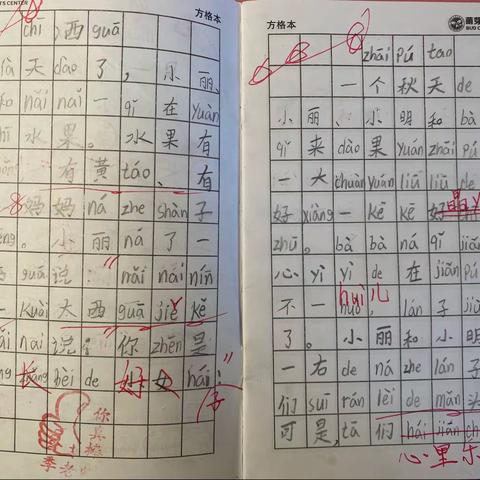 TS CENTER
方格本
chī 西 guā
天 dào 了，小 丽、
nǎi nai 一 qǐ 在 yuàn
水 果。水 果 有
有 黄 táo、有
妈 妈 ná zhe shàn 子
小 丽 ná 了 一
guā 说：“nǎi nai nín
kuài 大 西 guā jiě kě
nai 说：“你 zhēn 是
bèi de 好 女 hái！”
(子
你真棒
方格本
苗芽
zhāi pú tao
一 个 秋 天 de
小 丽、小 明 和 bà
qǐ 来 dào 果 yuán zhāi pú
一 大 chuàn yuán liū liū de
好 xiàng 一 kē kē 好 晶
zhū。bà bà ná qǐ jiǎn
心 yì yì de 在 jiǎn pú
不 一 huì 儿，lán 子 jiù
了。小 丽 和 小 明
一 右 de ná zhe lán 子
们 suī rán lèi de mǎn 头
可 是，tā 们 hái jiān ch
心里乐